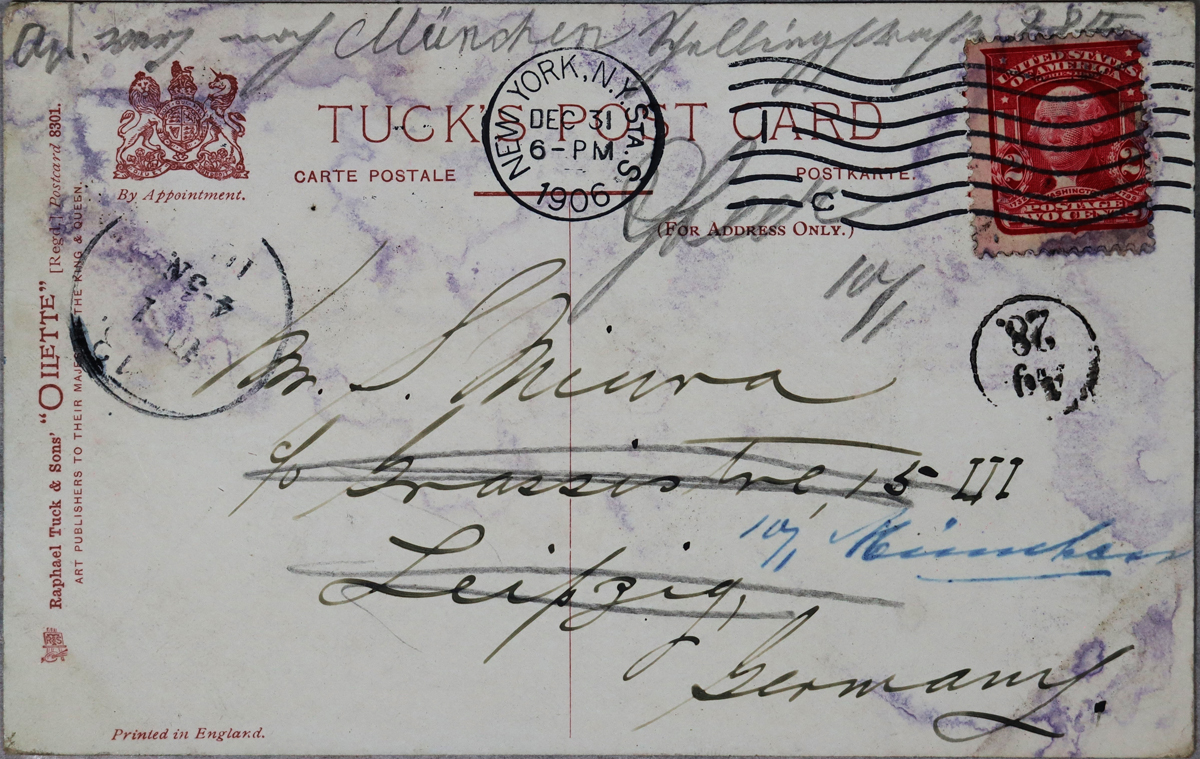 München Schellingstraße
TUCK'S POST CARD
CARTE POSTALE
POSTKARTE.
(FOR ADDRESS ONLY.)
By Appointment.
NEW YORK, N.Y. STA. S
DEC 31
6-PM
1906
1
C
UNITED STATES
OF AMERICA
2 2
WASHINGTON
POSTAGE
TWO CENTS
10/1
4-5N
28
Mr. S. Miura
c/o Grassistre 15 III
10/1 München
Leipzig,
Germany.
Raphael Tuck & Sons' "OILETTE" [Regd.] Postcard 8301.
ART PUBLISHERS TO THEIR MAJESTIES THE KING & QUEEN.
Printed in England.